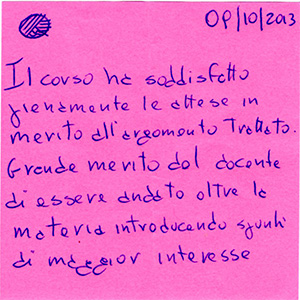 09/10/2013
Il corso ha soddisfatto
pienamente le attese in
merito all'argomento Trattato.
Grande merito del docente
di essere andato oltre la
materia introducendo spunti
di maggior interesse